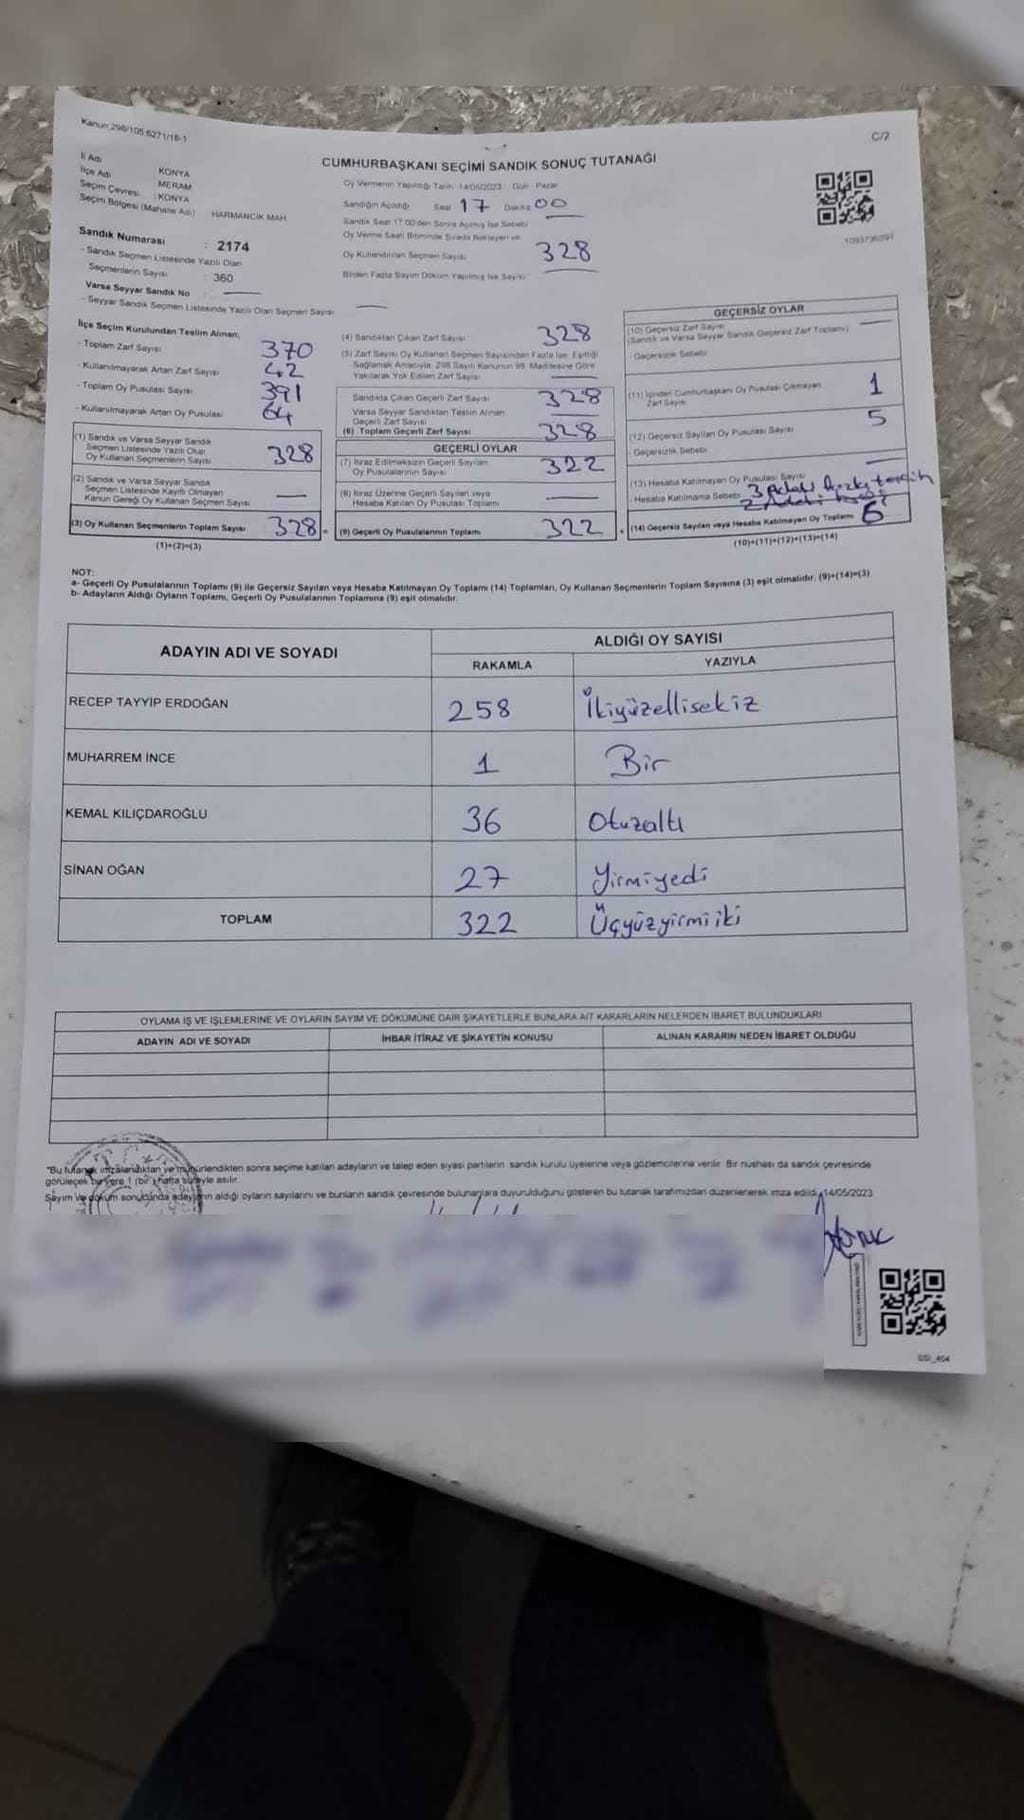 Kanun:298/105,6271/18-1
C/2
CUMHURBAŞKANI SEÇİMİ SANDIK SONUÇ TUTANAĞI
İl Adı : KONYA
İlçe Adı : MERAM
Seçim Çevresi : KONYA
Seçim Bölgesi (Mahalle Adı) HARMANCIK MAH
Sandık Numarası : 2174
- Sandık Seçmen Listesinde Yazılı Olan
Seçmenlerin Sayısı : 360
Varsa Seyyar Sandık No :
- Seyyar Sandık Seçmen Listesinde Yazılı Olan Seçmen Sayısı
Oy Vermenin Yapıldığı Tarih :14/05/2023 Gün : Pazar
Sandığın Açıldığı Saat 17 Dakika 00
Sandık Saat 17:00'den Sonra Açılmış İse Sebebi
Oy Verme Saati Bitiminde Sırada Bekleyen ve
Oy Kullandırılan Seçmen Sayısı 328
Birden Fazla Sayım Döküm Yapılmış İse Sayısı
İlçe Seçim Kurulundan Teslim Alınan;
- Toplam Zarf Sayısı 370
- Kullanılmayarak Artan Zarf Sayısı 42
- Toplam Oy Pusulası Sayısı 391
- Kullanılmayarak Artan Oy Pusulası 64
(1) Sandık ve Varsa Seyyar Sandık
Seçmen Listesinde Yazılı Olup
Oy Kullanan Seçmenlerin Sayısı 328
(2) Sandık ve Varsa Seyyar Sandık
Seçmen Listesinde Kayıtlı Olmayan
Kanun Gereği Oy Kullanan Seçmen Sayısı
(3) Oy Kullanan Seçmenlerin Toplam Sayısı 328
(1)+(2)=(3)
(4) Sandıktan Çıkan Zarf Sayısı 328
(5) Zarf Sayısı Oy Kullanan Seçmen Sayısından Fazla İse, Eşitliği
Sağlamak Amacıyla, 298 Sayılı Kanunun 98. Maddesine Göre
Yakılarak Yok Edilen Zarf Sayısı
Sandıkta Çıkan Geçerli Zarf Sayısı 328
Varsa Seyyar Sandıktan Teslim Alınan
Geçerli Zarf Sayısı
(6) Toplam Geçerli Zarf Sayısı 328
GEÇERLİ OYLAR
(7) İtiraz Edilmeksizin Geçerli Sayılan
Oy Pusulalarının Sayısı 322
(8) İtiraz Üzerine Geçerli Sayılan veya
Hesaba Katılan Oy Pusulası Toplamı
(9) Geçerli Oy Pusulalarının Toplamı 322
GEÇERSİZ OYLAR
(10) Geçersiz Zarf Sayısı
(Sandık ve Varsa Seyyar Sandık Geçersiz Zarf Toplamı)
- Geçersizlik Sebebi
(11) İçinden Cumhurbaşkanı Oy Pusulası Çıkmayan
Zarf Sayısı 1
(12) Geçersiz Sayılan Oy Pusulası Sayısı 5
- Geçersizlik Sebebi
(13) Hesaba Katılmayan Oy Pusulası Sayısı
- Hesaba Katılmama Sebebi 3 Adet tercih
2 Adet
(14) Geçersiz Sayılan veya Hesaba Katılmayan Oy Toplamı 6
(10)+(11)+(12)+(13)=(14)
NOT:
a- Geçerli Oy Pusulalarının Toplamı (9) ile Geçersiz Sayılan veya Hesaba Katılmayan Oy Toplamı (14) Toplamları, Oy Kullanan Seçmenlerin Toplam Sayısına (3) eşit olmalıdır. (9)+(14)=(3)
b- Adayların Aldığı Oyların Toplamı, Geçerli Oy Pusulalarının Toplamına (9) eşit olmalıdır.
ADAYIN ADI VE SOYADI
ALDIĞI OY SAYISI
RAKAMLA YAZIYLA
RECEP TAYYİP ERDOĞAN 258 İkiyüzellisekiz
MUHARREM İNCE 1 Bir
KEMAL KILIÇDAROĞLU 36 Otuzaltı
SİNAN OĞAN 27 Yirmiyedi
TOPLAM 322 Üçyüzyirmiiki
OYLAMA İŞ VE İŞLEMLERİNE VE OYLARIN SAYIM VE DÖKÜMÜNE DAİR ŞİKAYETLERLE BUNLARA AİT KARARLARIN NELERDEN İBARET BULUNDUKLARI
ADAYIN ADI VE SOYADI İHBAR İTİRAZ VE ŞİKAYETİN KONUSU ALINAN KARARIN NEDEN İBARET OLDUĞU
"Bu tutanak imzalandıktan ve mühürlendikten sonra seçime katılan adayların ve talep eden siyasi partilerin sandık kurulu üyelerine veya gözlemcilerine verilir. Bir nüshası da sandık çevresinde
görülecek bir yere 1 (bir) hafta süreyle asılır.
Sayım ve döküm sonucunda adayların aldığı oyların sayılarını ve bunların sandık çevresinde bulunanlara duyurulduğunu gösteren bu tutanak tarafımızdan düzenlenerek imza edildi. 14/05/2023